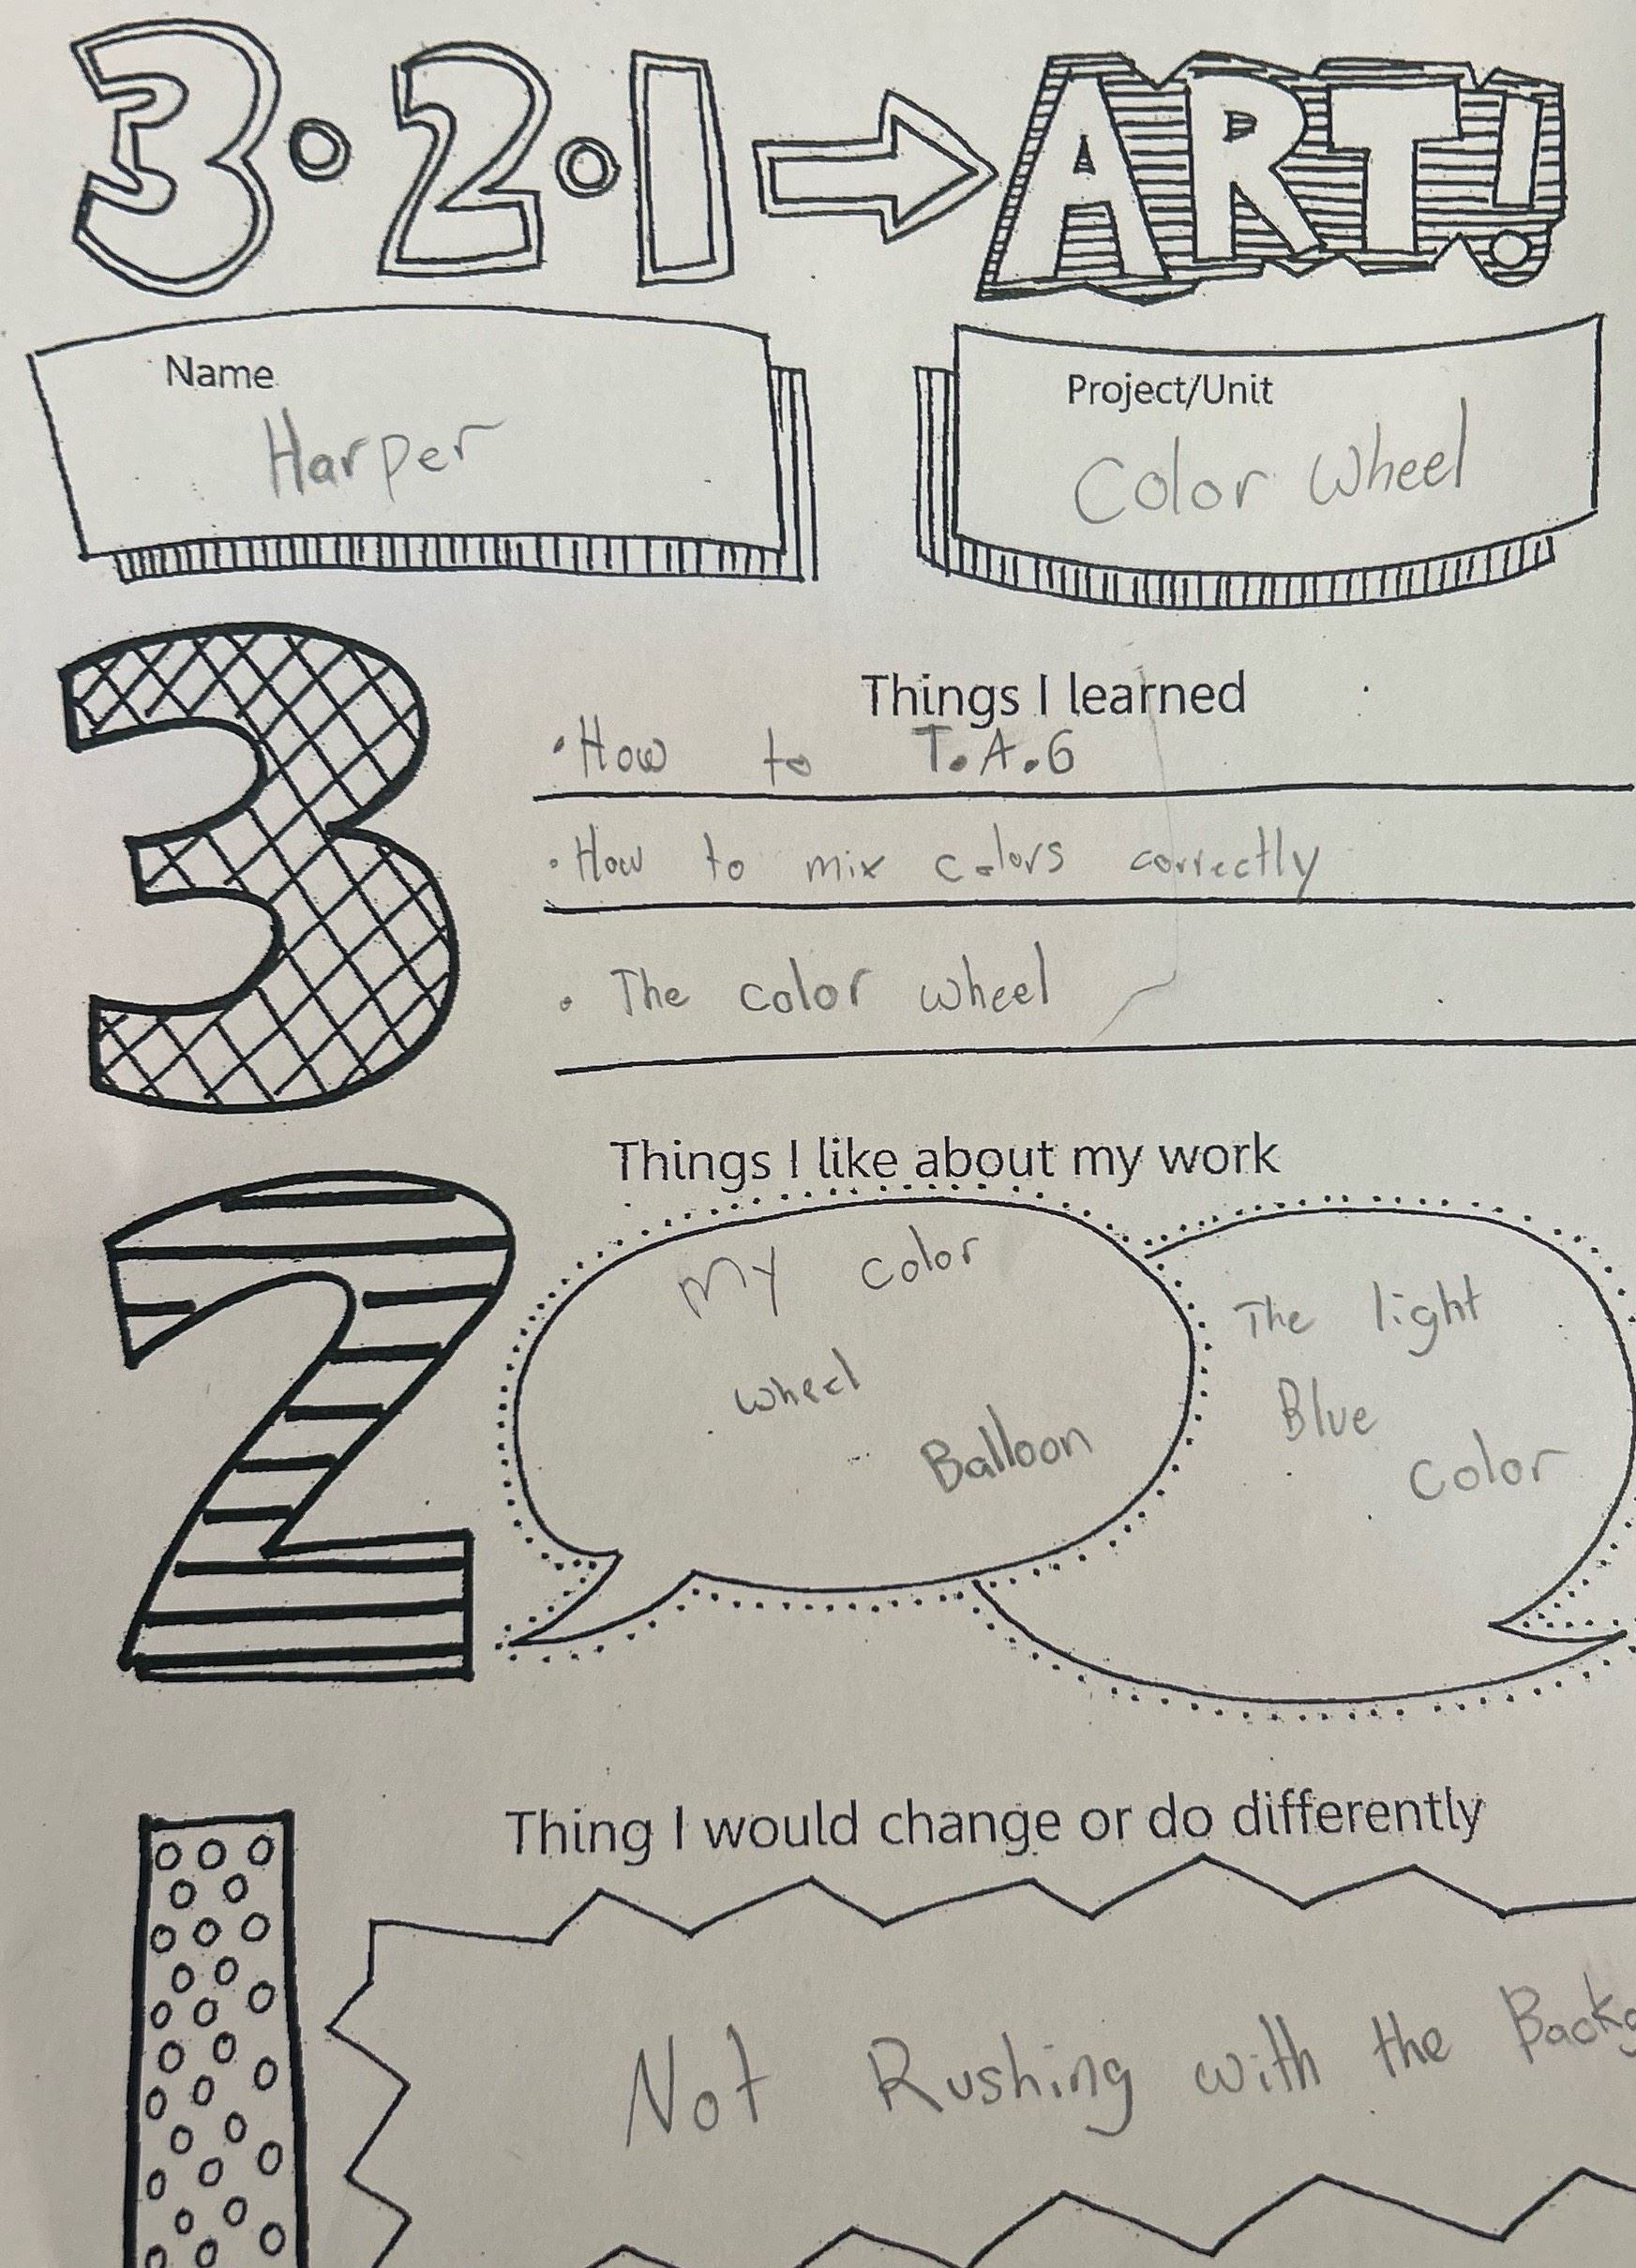 3·2·1→ART!
Name
Harper
Project/Unit
Color Wheel
3
Things I learned
·How to T.A.G
·How to mix colors correctly
· The color wheel
2
Things I like about my work
My color
wheel
Balloon
The light
Blue
color
1
Thing I would change or do differently
Not Rushing with the